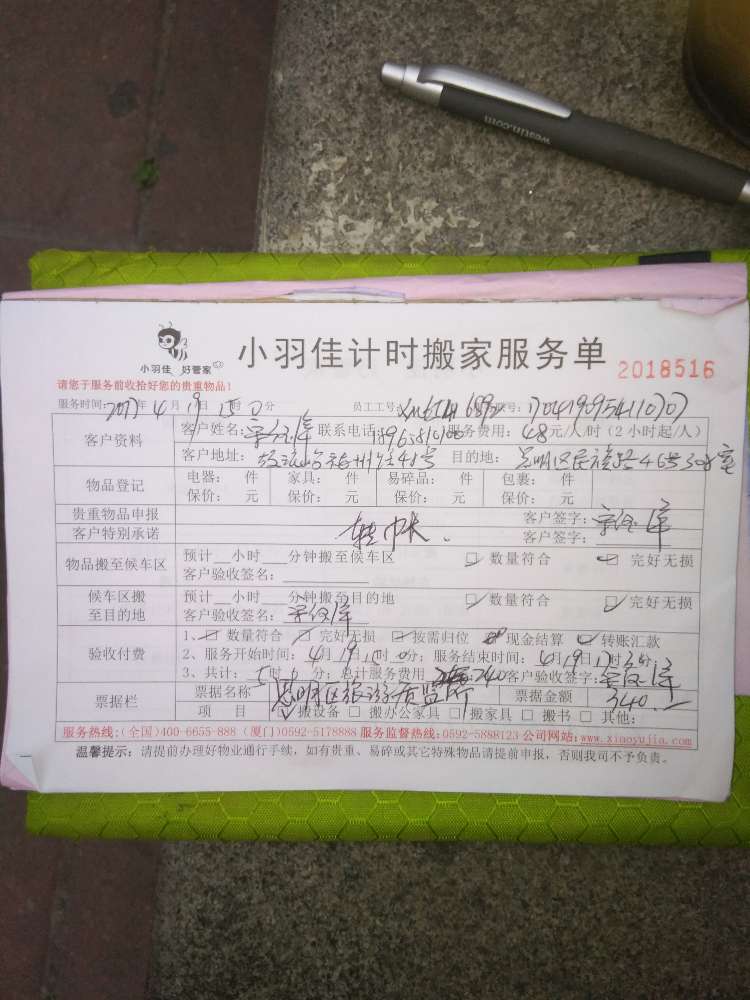 westin.com
小羽佳 好管家
小羽佳计时搬家服务单 2018516
请您于服务前收拾好您的贵重物品!
服务时间: 2017年4月19日15时0分 员工工号:
客户资料 客户姓名: 联系电话: 服务费用: 48元/人/时(2小时起/人)
客户地址: 目的地: 思明区民族路46号
物品登记 电器: 件 家具: 件 易碎品: 件 包裹: 件
保价: 元 保价: 元 保价: 元 保价: 元
贵重物品申报 客户签字:
客户特别承诺 转帐. 客户签字:
物品搬至候车区 预计__小时__分钟搬至候车区 ☑ 数量符合 ☑ 完好无损
客户验收签名:
候车区搬至目的地 预计__小时__分钟搬至目的地 ☑ 数量符合 ☑ 完好无损
客户验收签名:
验收付费 1、☑ 数量符合 ☑ 完好无损 ☑ 按需归位 现金结算 ☑ 转账汇款
2、服务开始时间: 4月19日15时0分; 服务结束时间: 4月19日17时分
3、共计: 时 分; 总计服务费用 240 客户验收签字:
票据栏 票据名称 思明区旅游质监所 票据金额 340.—
项 目 □搬设备 □搬办公家具 □搬家具 □搬书 □其他:
服务热线:(全国)400-6655-888 (厦门)0592-5178888 服务监督热线:0592-5888123 公司网站:www.xiaoyujia.com
温馨提示: 请提前办理好物业通行手续，如有贵重、易碎或其它特殊物品请提前申报，否则我司不予负责。